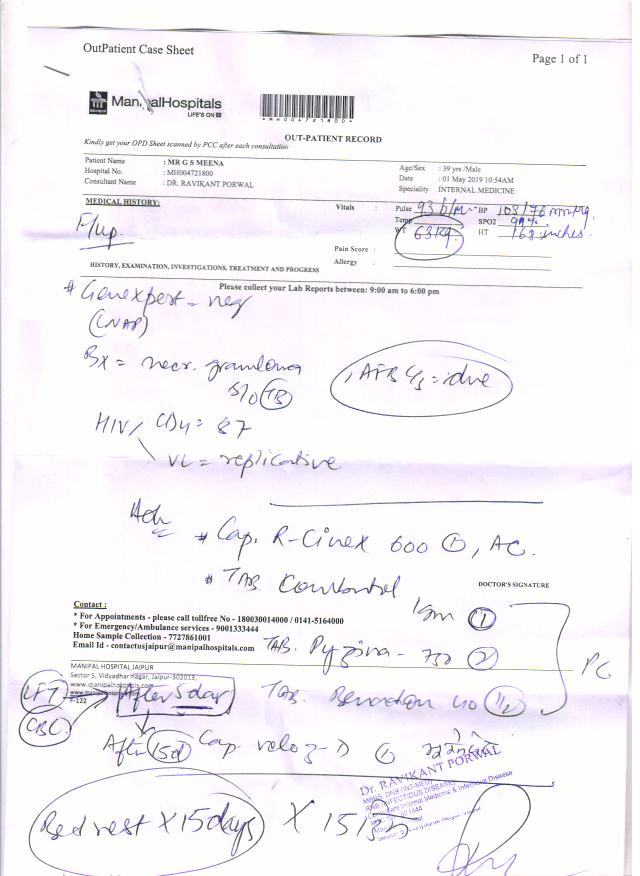 OutPatient Case Sheet
Page 1 of 1
ManipalHospitals
LIFE'S ON
*MH004721800*
OUT-PATIENT RECORD
Kindly get your OPD Sheet scanned by PCC after each consultation
Patient Name : MR G S MEENA
Hospital No. : MH004721800
Consultant Name : DR. RAVIKANT PORWAL
Age/Sex : 39 yrs /Male
Date : 01 May 2019 10:54AM
Speciality INTERNAL MEDICINE
MEDICAL HISTORY:
F/up.
Vitals :
Pulse 93 b/m BP 103/76 mmHg.
Temp SPO2 99%
WT 63kg. HT 163 inches.
Pain Score :
Allergy :
HISTORY, EXAMINATION, INVESTIGATIONS, TREATMENT AND PROGRESS
Please collect your Lab Reports between: 9:00 am to 6:00 pm
# Genexpert = neg
BX = necr. granuloma
S/O TB
, AFB C/S = due
HIV / CD4 = 87
VL = replicative
Adv
* Cap. R-Cinex 600 ①, AC.
* TAB. Combutol
1gm ①
DOCTOR'S SIGNATURE
Contact :
* For Appointments - please call tollfree No - 180030014000 / 0141-5164000
* For Emergency/Ambulance services - 9001333444
Home Sample Collection - 7727861001
Email Id - contactusjaipur@manipalhospitals.com
TAB. Pyzina - 750 ②
PC
MANIPAL HOSPITAL JAIPUR
Sector 5, Vidyadhar nagar, Jaipur-302013,
www.manipalhospitals.com
F-122
LFT
CBC
After 5 day
TAB. Benadon 40 1/2
After 15d Cap. veloz-D ①
Dr. RAVIKANT PORWAL
Bed rest X 15 days X 15/